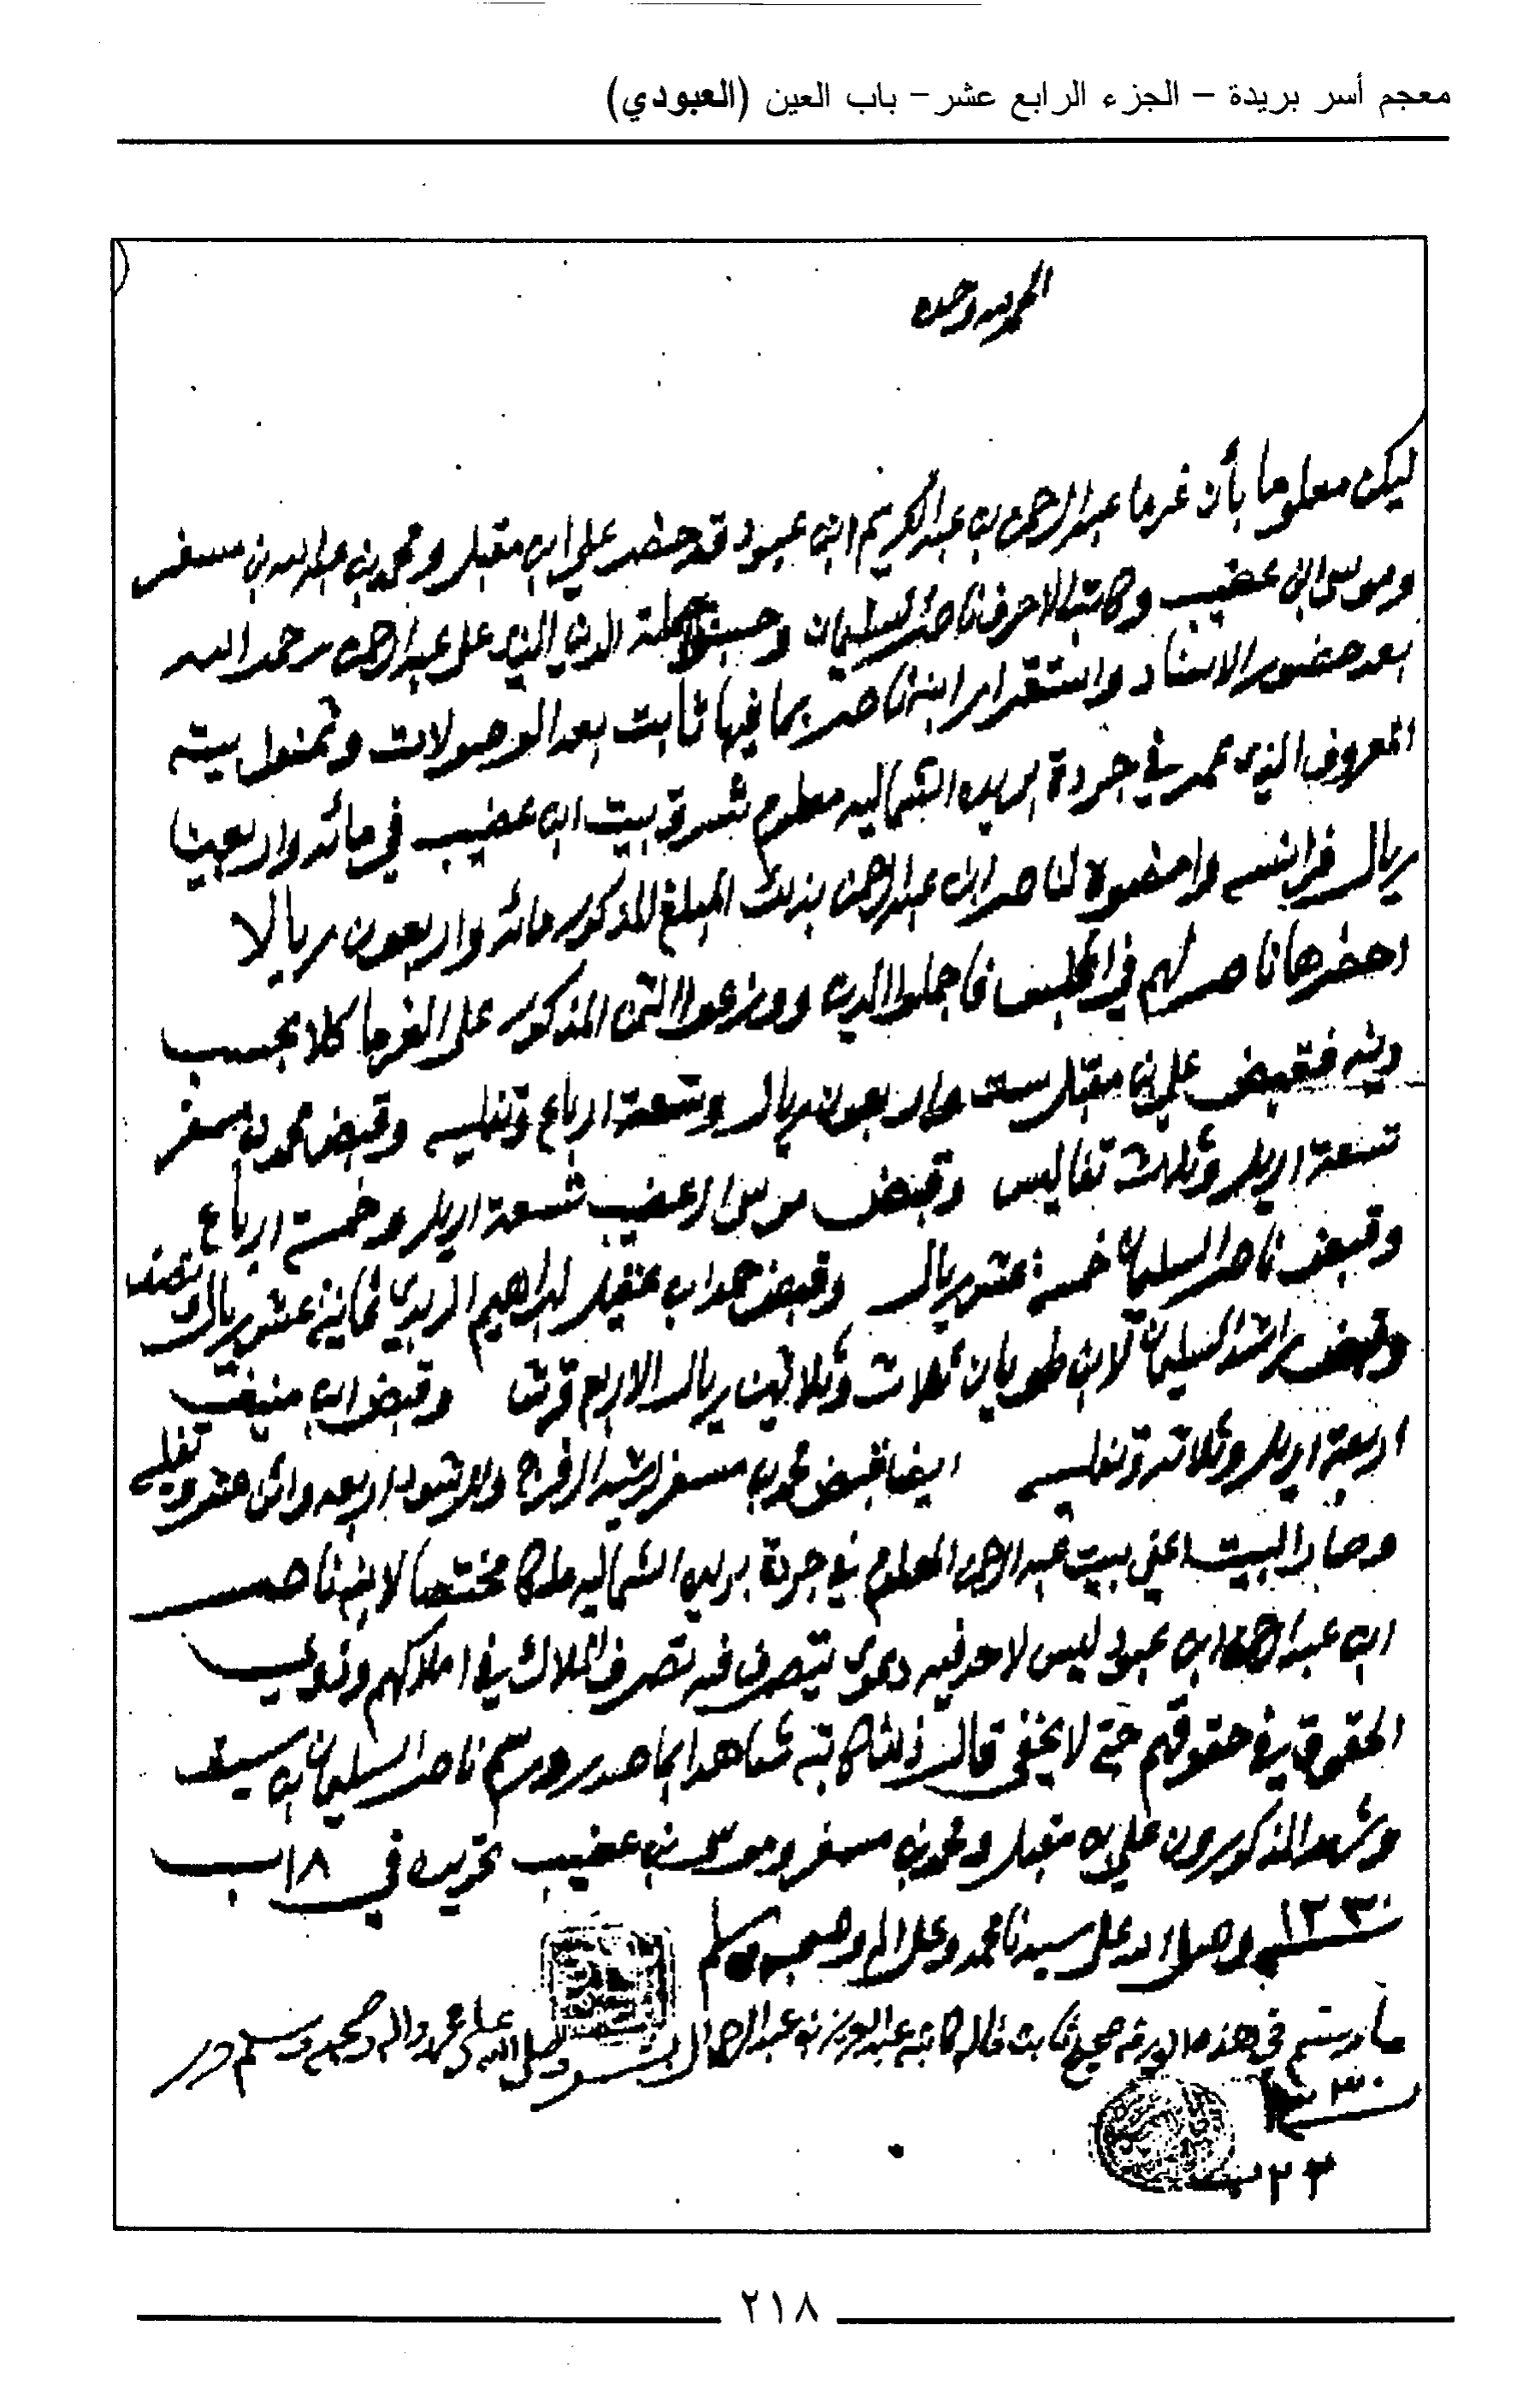 معجم أسر بريدة – الجزء الرابع عشر – باب العين (العبودي)
الحمد لله وحده
ليكن معلوما بأن غرما عبدالرحمن بن عبدالكريم ابن عبود قد حضر علي ابن مقبل ومحمد بن عبدالله بن مسفر
وموسى ابن عضيب وكاتب الاحرف ناصر السليمان وحسبنا جملة الدين الذي على عبدالرحمن رحمه الله
بعد حضور الاسناد واستقرار ابنه ناصر بما فيها ثابت بعد الوصولات وثمنوا بيته
المعروف الذي عمر في جردة بريده الشماليه معلوم شرق بيت ابن عضيب في مائه واربعين
ريال فرانسه وامضوه لناصر ابن عبدالرحمن بذلك المبلغ المذكور مائة واربعون ريالا
احضرها ناصر لهم في المجلس فاجملوا الدين ووزعوا الثمن المذكور على الغرما كلا بحسب
دينه فقبض علي بن مقبل ست واربعون ريال وتسعة ارباع وتفليسه وقبض محمد بن مسفر
تسعة اريل وثلاث تفاليس وقبض موسى ا عضيب تسعة اريل وخمسة ارباع
وقبض ناصر السليمان خمسة عشر ريال وقبض حمد ابن عقيل لبراهيم الربدي ثمانية عشر ريال ونصف
وقبض راشد السليمان لابن طويان ثلاث وثلاثين ريال الا ربع قرش وقبض ابن منيف
اربعة اريل وثلاثة وتفليسه ايضا قبض محمد بن مسفر لرشيد الفرج اربعه
وصار البيت اعني بيت عبدالرحمن المعلوم في جردة بريده الشماليه ملكا مختصا لابنه ناصر
ابن عبدالرحمن ابن عبود ليس لاحد فيه دعوى يتصرف فيه تصرف الملاك في املاكهم وذوي
الحقوق في حقوقهم حتى لا يخفى قال ذلك كاتبه شاهدا بما صدر ورسم ناصر السليمان بن سيف
وشهد المذكورون علي بن مقبل ومحمد بن مسفر وموسى بن عضيب تحريره في ١٨ ب
١٣٣٠ وصلى الله على سيدنا محمد وعلى اله وصحبه وسلم
ما رسم في هذه الورقه صحيح ثابت قاله كاتبه عبدالعزيز بن عبدالله وصلى الله على محمد واله وصحبه وسلم حرر
٢٣ ب
٢١٨